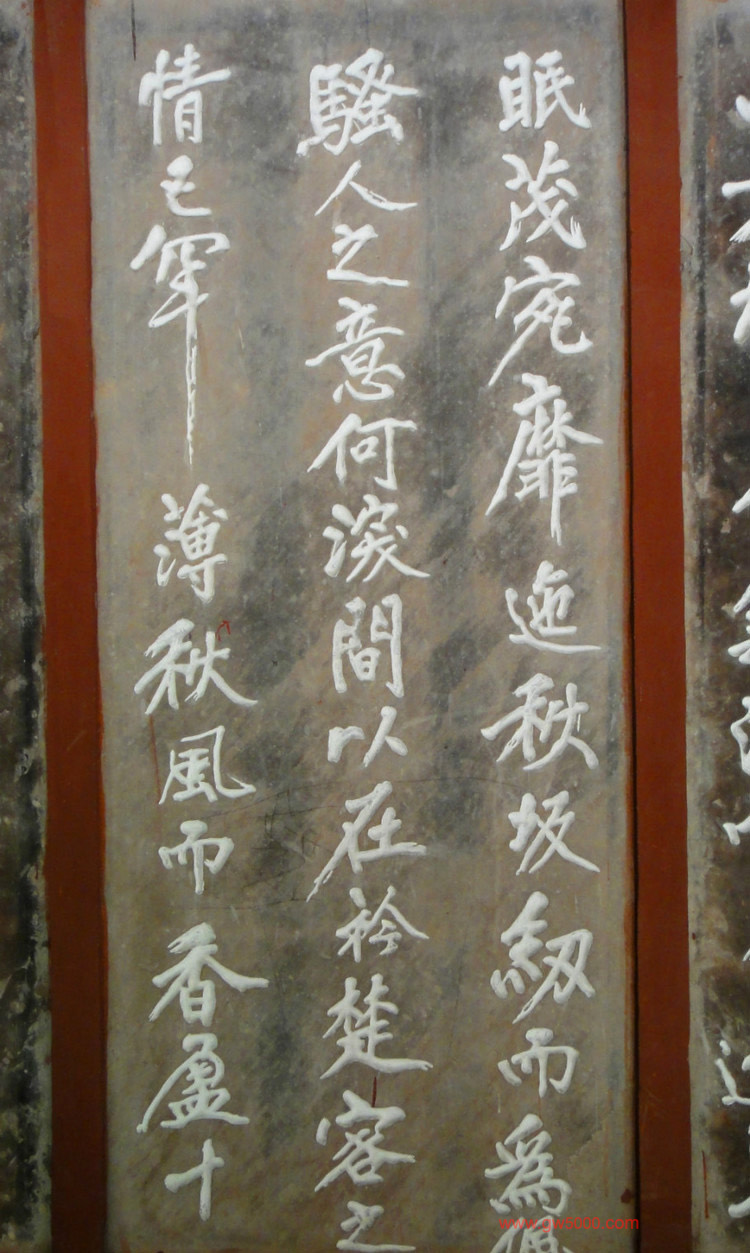 眠茂宛靡迤秋坂紉而為
騷人之意何深間以在衿楚客之
情已罕薄秋風而香盈十
www.gw5000.com